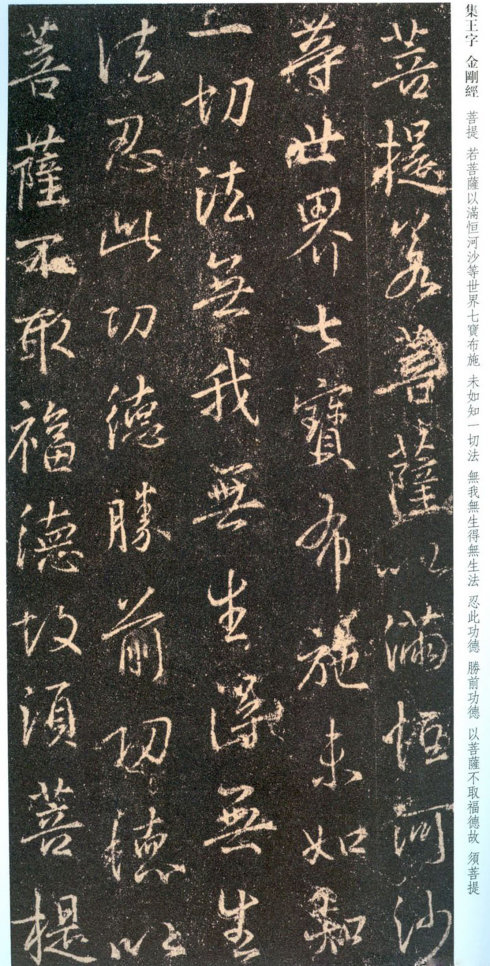 集王字 金剛經 菩提 若菩薩以滿恒河沙等世界七寶布施 未如知一切法 無我無生得無生法 忍此功德 勝前功德 以菩薩不取福德故 須菩提
菩提若菩薩以滿恒河沙
等世界七寶布施未如知
一切法無我無生得無生
法忍此功德勝前功德以
菩薩不取福德故須菩提